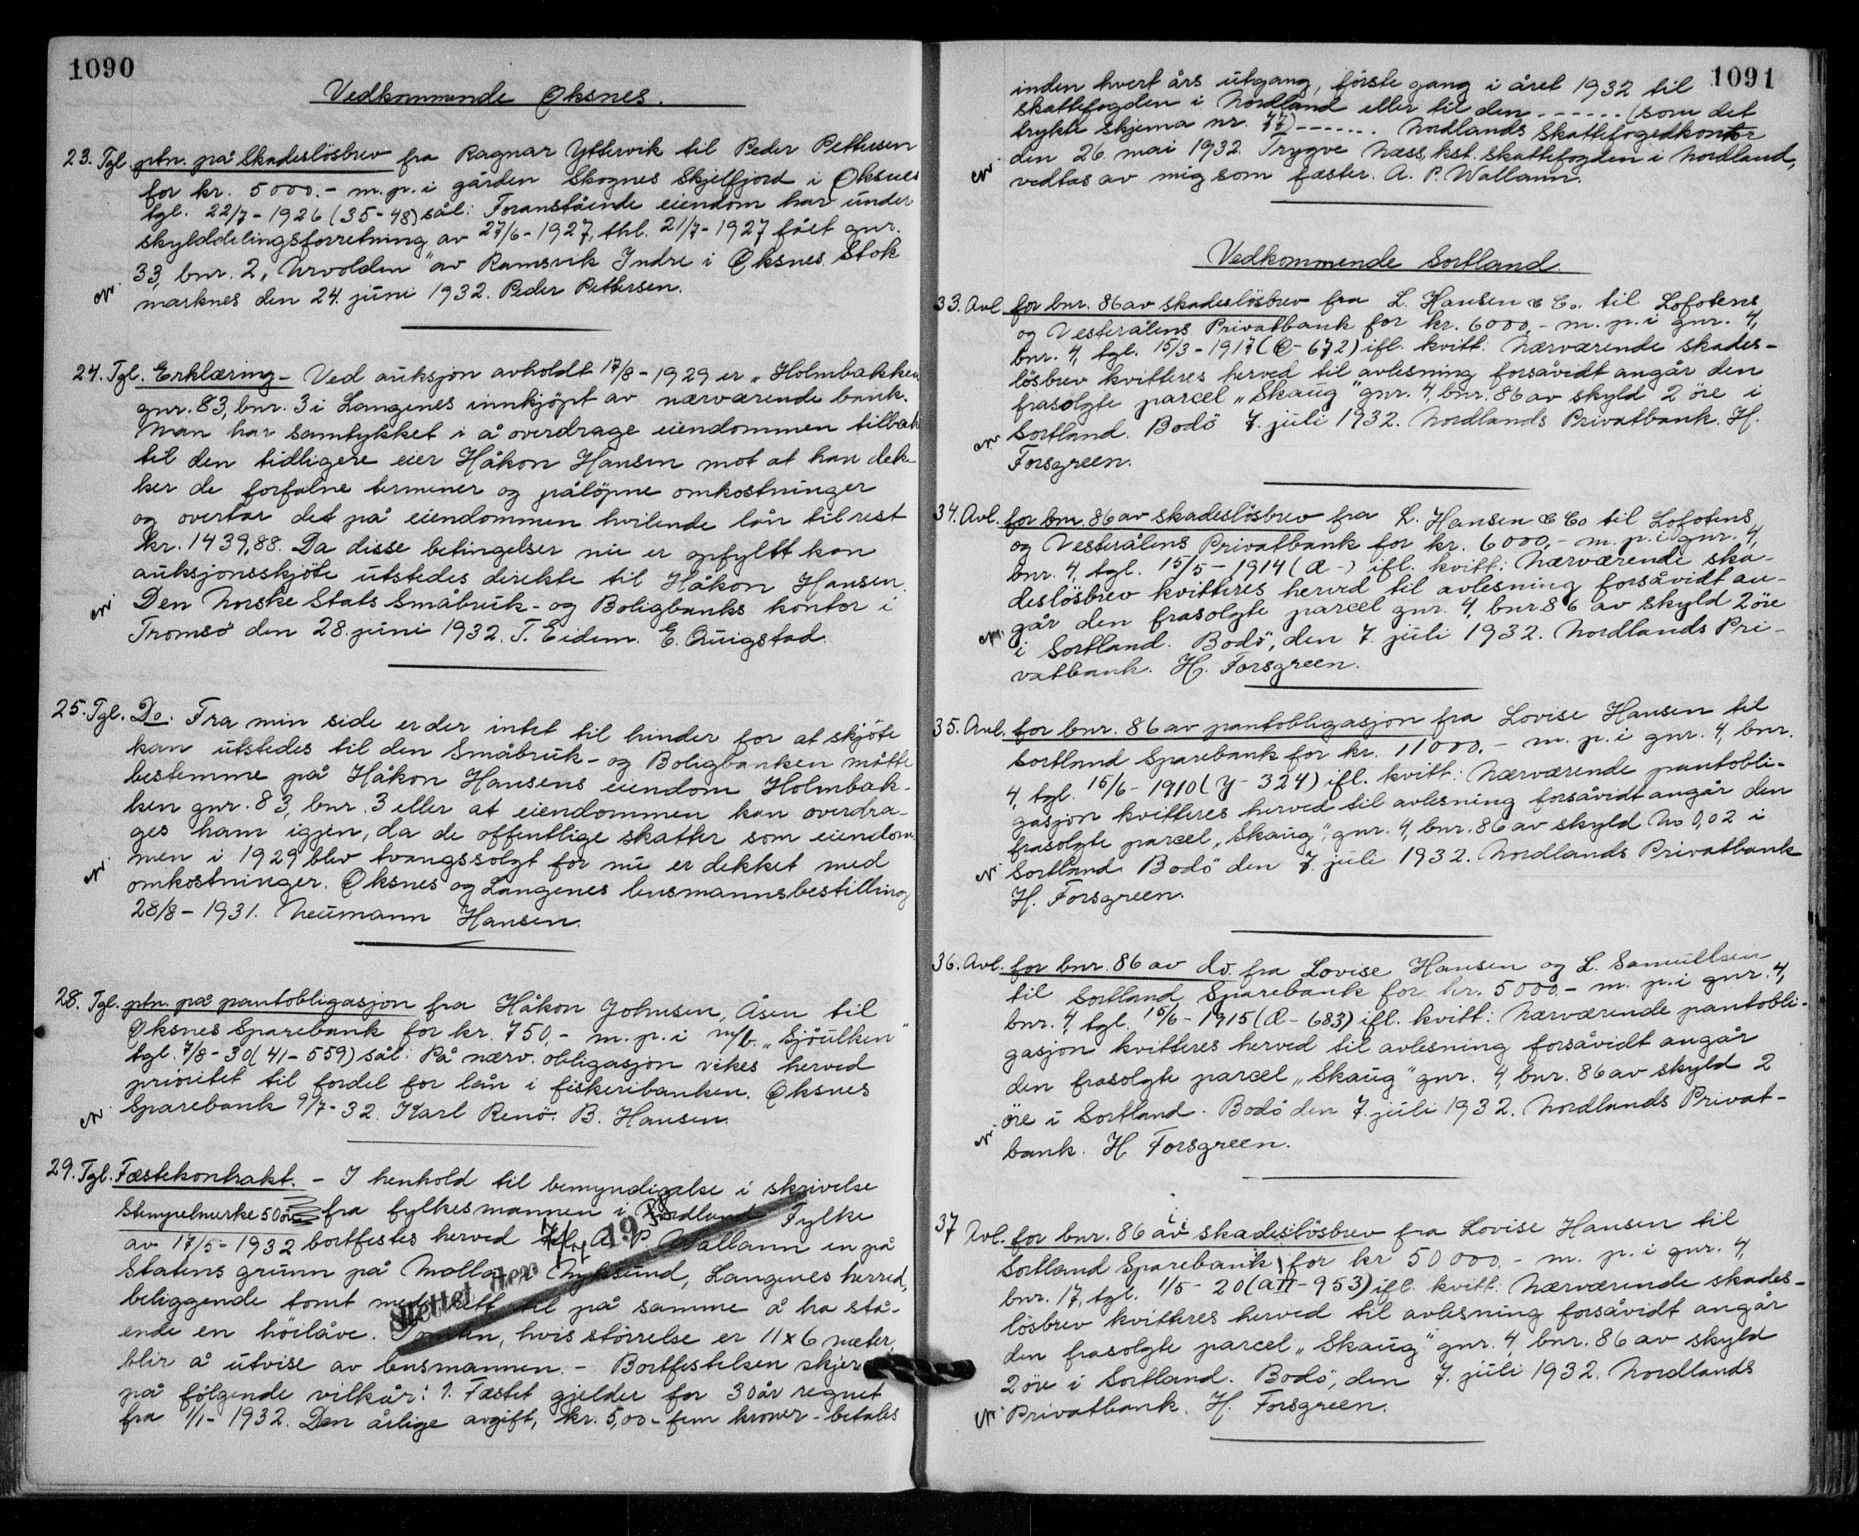 1090
Vedkommende Øksnes.
23. Tgl ptn. på Skadeslösbrev fra Ragnar Yttervik til Peder Pettersen
for kr. 5000.- m.p. i gården Skognes Skjelfjord i Øksnes
tgl. 22/7-1926 (35-48) sål: Foranstående eiendom har under
skylddelingsforretning av 27/6-1927, thl. 21/7-1927 fået gnr.
33, bnr. 2, "Urvolden" av Ramsvik Indre i Øksnes. Stok
marknes den 24. juni 1932. Peder Pettersen.
24. Tgl. Erklæring - Ved auksjon avholdt 17/8-1929 er "Holmbakken
gnr. 83, bnr. 3 i Langenes innkjöpt av nærværende bank.
Man har samtykket i å overdrage eiendommen tilbak
til den tidligere eier Håkon Hansen mot at han dek-
ker de forfalne terminer og pålöpne omkostninger
og overtar det på eiendommen hvilende lån til rest
kr. 1439,88. Da disse betingelser nu er opfyllt kan
auksjonsskjöte utstedes direkte til Håkon Hansen.
Den Norske Stats Småbruk- og Boligbanks kontor i
Tromsö den 28. juni 1932. T. Eidem. E. Quigstad.
25. Tgl. Do. Fra min side er der intet til hinder for at skjöte
kan utstedes til den Småbruk- og Boligbanken måtte
bestemme på Håkon Hansens eiendom Holmbak-
ken gnr. 83, bnr. 3 eller at eiendommen kan overdra-
ges ham igjen, da de offentlige skatter som eiendom
men i 1929 blev tvangssolgt for nu er dekket med
omkostninger. Øksnes og Langenes lensmannsbestilling
28/8-1931. Neumann Hansen.
28. Tgl. ptn. på pantobligasjon fra Håkon Johnsen, Åsen til
Øksnes Sparebank for kr. 750,- m.p. i m/b. "Sjöulken"
tgl. 7/8-30 (41-559) sål: På nærv. obligasjon vikes herved
prioritet til fordel for lån i fiskeribanken. Øksnes
Sparebank 9/7-32. Karl Renö. B. Hansen.
29. Tgl. Fæstekontrakt. - I henhold til bemyndigelse i skrivelse
Stempelmerke 50 öre fra fylkesmannen i Nordland Fylke
av 17/5-1932 bortfestes herved til A. P. Wallann en på
Statens grunn på Molla i Nyksund, Langenes herred,
beliggende tomt med rett til på samme å ha stå-
ende en höilåve. Tomten, hvis störrelse er 11 x 6 meter,
blir å utvise av lensmannen. - Bortfestelsen skjer
på følgende vilkår: 1. Fæstet gjelder for 30 år regnet
fra 1/1-1932. Den årlige avgift, kr. 5,00 - fem kroner - betales
Slettet den 19
1091
inden hvert års utgang, förste gang i året 1932 til
skattefogden i Nordland eller til den ...... (som det
trykte skjema nr. 77) ...... Nordlands Skattefogedkontor
den 26. mai 1932. Trygve Næss, kst. skattefogden i Nordland,
vedtas av mig som fæster. A. P. Wallann.
Vedkommende Sortland
33. Avl for bnr. 86 av skadeslösbrev fra L. Hansen & Co. til Lofotens
og Vesterålens Privatbank for kr. 6000,- m.p. i gnr. 4,
bnr. 4, tgl. 15/3-1917 (Ø-672) ifl. kvitt: Nærværende skades-
lösbrev kvitteres herved til avlesning forsåvidt angår den
frasolgte parcel "Skaug" gnr. 4, bnr. 86 av skyld 2 öre i
Sortland. Bodö 7. juli 1932. Nordlands Privatbank. H.
Forsgreen.
34. Avl. for bnr. 86 av skadeslösbrev fra L. Hansen & Co til Lofotens
og Vesterålens Privatbank for kr. 6000,- m.p. i gnr. 4,
bnr. 4, tgl. 15/5-1914 (Æ-) ifl. kvitt: Nærværende ska-
deslösbrev kvitteres herved til avlesning forsåvidt an-
går den frasolgte parcel gnr. 4, bnr 86 av skyld 2 öre
i Sortland. Bodö, den 7. juli 1932. Nordlands Pri-
vatbank. H. Forsgreen.
35. Avl. for bnr. 86 av pantobligasjon fra Lovise Hansen til
Sortland Sparebank for kr. 11000.- m.p. i gnr. 4, bnr.
4, tgl. 15/6-1910 (y-324) ifl. kvitt.: Nærværende pantobli-
gasjon kvitteres herved til avlesning forsåvidt angår den
frasolgte parcel "Skaug", gnr. 4, bnr. 86 av skyld No 0,02 i
Sortland Bodö den 7. juli 1932. Nordlands Privatbank
H. Forsgreen.
36. Avl. for bnr. 86 av do. fra Lovise Hansen og L. Samuelsen
til Sortland Sparebank for kr. 5000.- m.p. i gnr. 4,
bnr. 4, tgl. 15/6-1915 (Æ-683) ifl. kvitt: Nærværende pantobli-
gasjon kvitteres herved til avlesning forsåvidt angår
den frasolgte parcel "Skaug" gnr. 4, bnr. 86 av skyld 2
öre i Sortland. Bodö den 7. juli 1932. Nordlands Privat-
bank. H. Forsgreen.
37 Avl. for bnr. 86 av skadeslösbrev fra Lovise Hansen til
Sortland Sparebank for kr 50000.- m. p. i gnr. 4,
bnr. 17, tgl. 1/5-20 (a II-953) ifl. kvitt: Nærværende skades-
lösbrev kvitteres herved til avlesning forsåvidt angår
den frasolgte parcel "Skaug" gnr. 4, bnr. 86 av skyld
2 öre i Sortland. Bodö, den 7. juli 1932. Nordlands
Privatbank. H. Forsgreen.